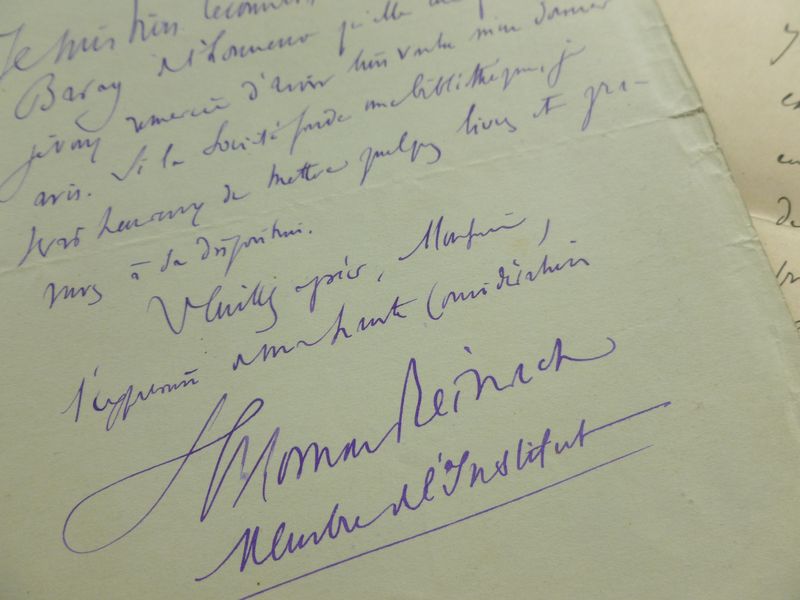 Je suis très reconnaiss
Baray de l'honneur qu'elle
je vous remercie d'avoir bien voulu m'en donner
avis. Si la Société fonde une bibliothèque, je
serai heureux de mettre quelques livres et gra-
vures à sa disposition.
Veuillez agréer, Monsieur,
l'expression de ma haute considération
Salomon Reinach
Membre de l'Institut